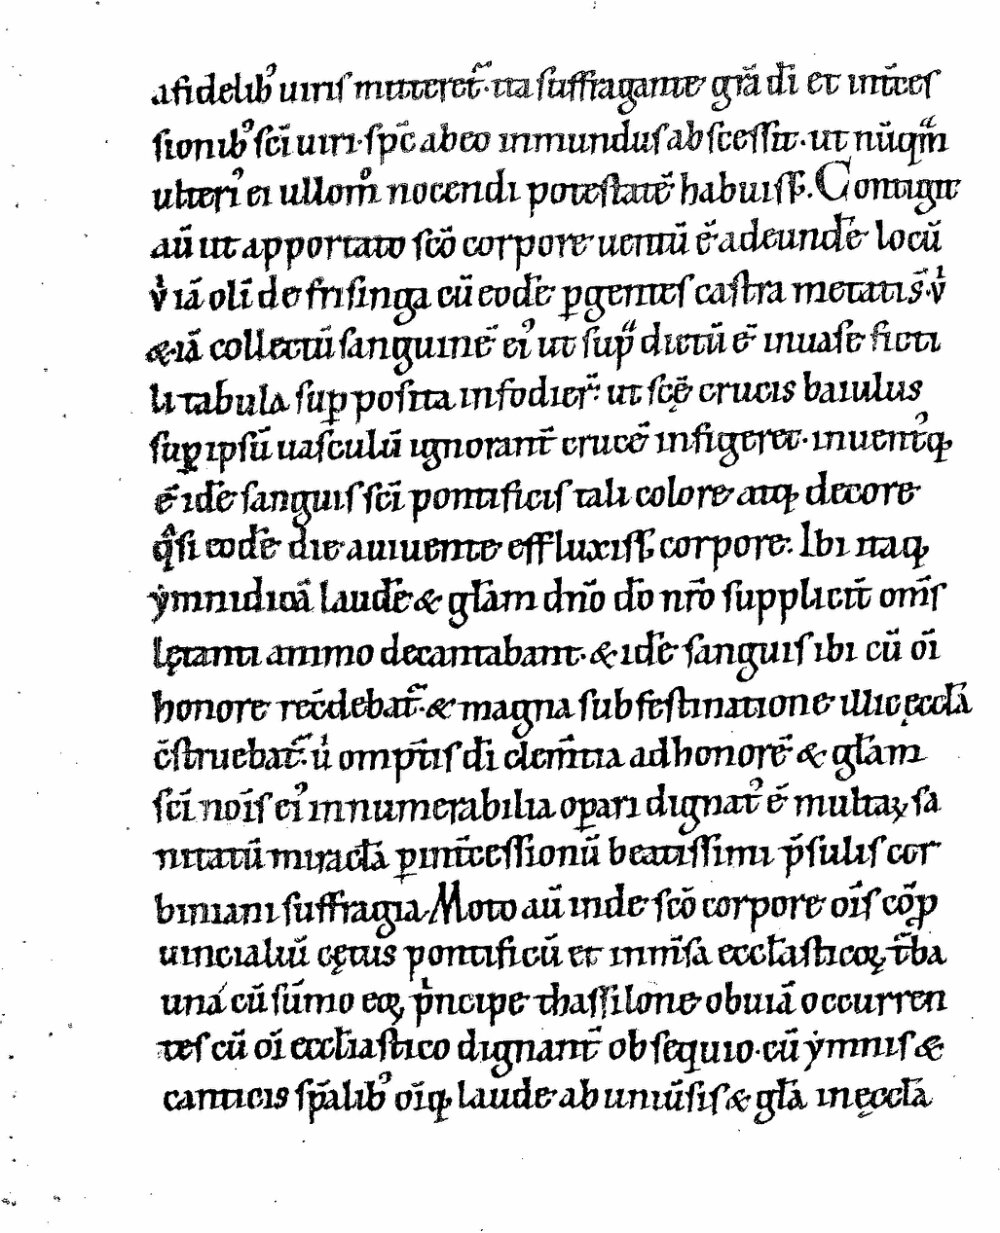 a fidelib᾽ uiris mitteret᷑· ita suffragante gr̄a dī et int̄ces
sionib᾽ sc̄i uiri· sp̄c ab eo inmundus abscessit· ut nūqᷓm
ulteri᾽ ei ullom̊ nocendi potestatē habuiss̄. Contigit
aū ut apportato sc̄o corpore uentū ē adeundē locū
v̍ iā olī de frisinga cū eodē ꝑgentes castra metati s̄· v̍
& iā collectū sanguinē ei᾽ ut supᷓ dictū ē in uase ficti
li tabula supꝑosita infodier̄· ut sc̄ę crucis baiulus
suꝑ ipsū uasculū ignorant̄ crucē infigeret· inuent᾽q;
ē idē sanguis sc̄i pontificis tali colore atq; decore
qͣsi eodē die a uiuente effluxiss̄ corpore. Ibi itaq;
ẏmnidicā laudē & gl̄am dn̄o dō nr̄o suppliciт̄ om̄s
lętanti animo decantabant· & idē sanguis ibi cū oī
honore recōdebat᷑· & magna sub festinatione illic ęccl̄a
c̄struebat᷑· u̍ om̄ptis dī clem̄tia ad honorē & gl̄am
sc̄i noīs ei᾽ innumerabilia oꝑari dignat᾽ ē multaꝝ sa
nitatū miracl̄a ꝑ int̄cessionū beatissimi p̄sulis cor
biniani suffragia. Moto aū inde sc̄o corpore oīs cōꝓ
uincialiū cętus pontificū et inm̄sa eccl̄asticoꝝ t̄ba
una cū sūmo eoꝝ pͥncipe thassilone obuiā occurren
tes cū oī eccl̄iastico dignant̄ obsequio· cū ẏmnis &
canticis sp̄alib᾽ oīq; laude ab uniūsis & gl̄a in ęccl̄a